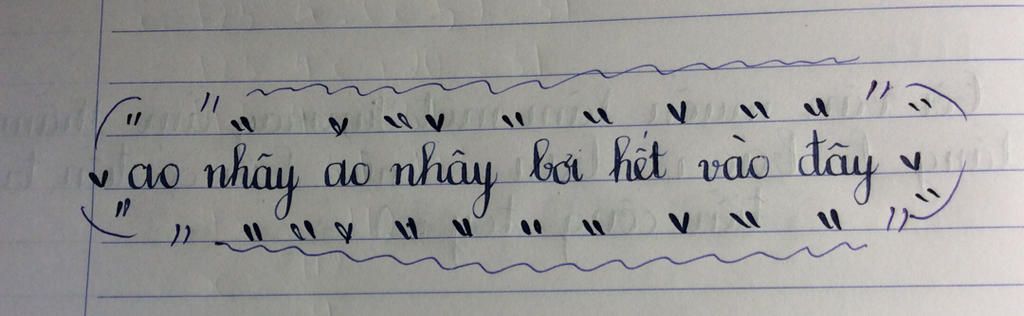 ao nhãy ao nhây bơi hết vào đãy